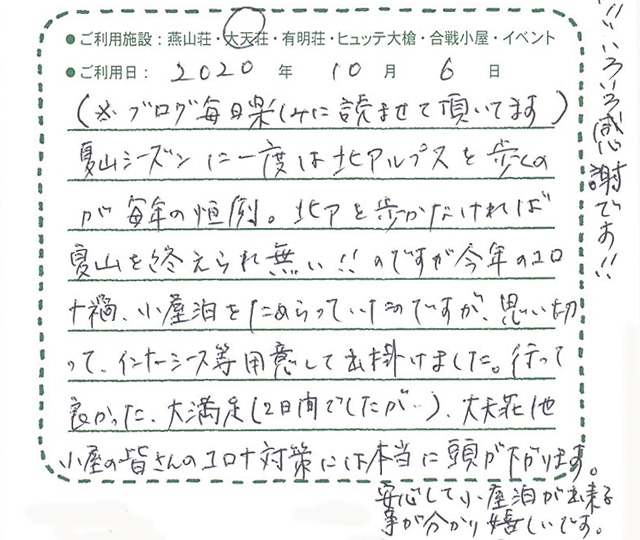 ● ご利用施設：燕山荘・大天荘・有明荘・ヒュッテ大槍・合戦小屋・イベント
● ご利用日： 2020 年 10 月 6 日
(※ブログ毎日楽しみに読ませて頂いてます)
夏山シーズンに一度は北アルプスを歩くの
が毎年の恒例。北アを歩かなければ
夏山を終えられ無い!! のですが今年のコロ
ナ禍、小屋泊をためらっていたのですが、思い切
って、インナーシーツ等用意して出掛けました。行って
良かった、大満足(2日間でしたが…)、大天荘他
小屋の皆さんのコロナ対策には本当に頭が下がります。
安心して小屋泊が出来る
事が分かり嬉しいです。
いろいろ感謝です!!